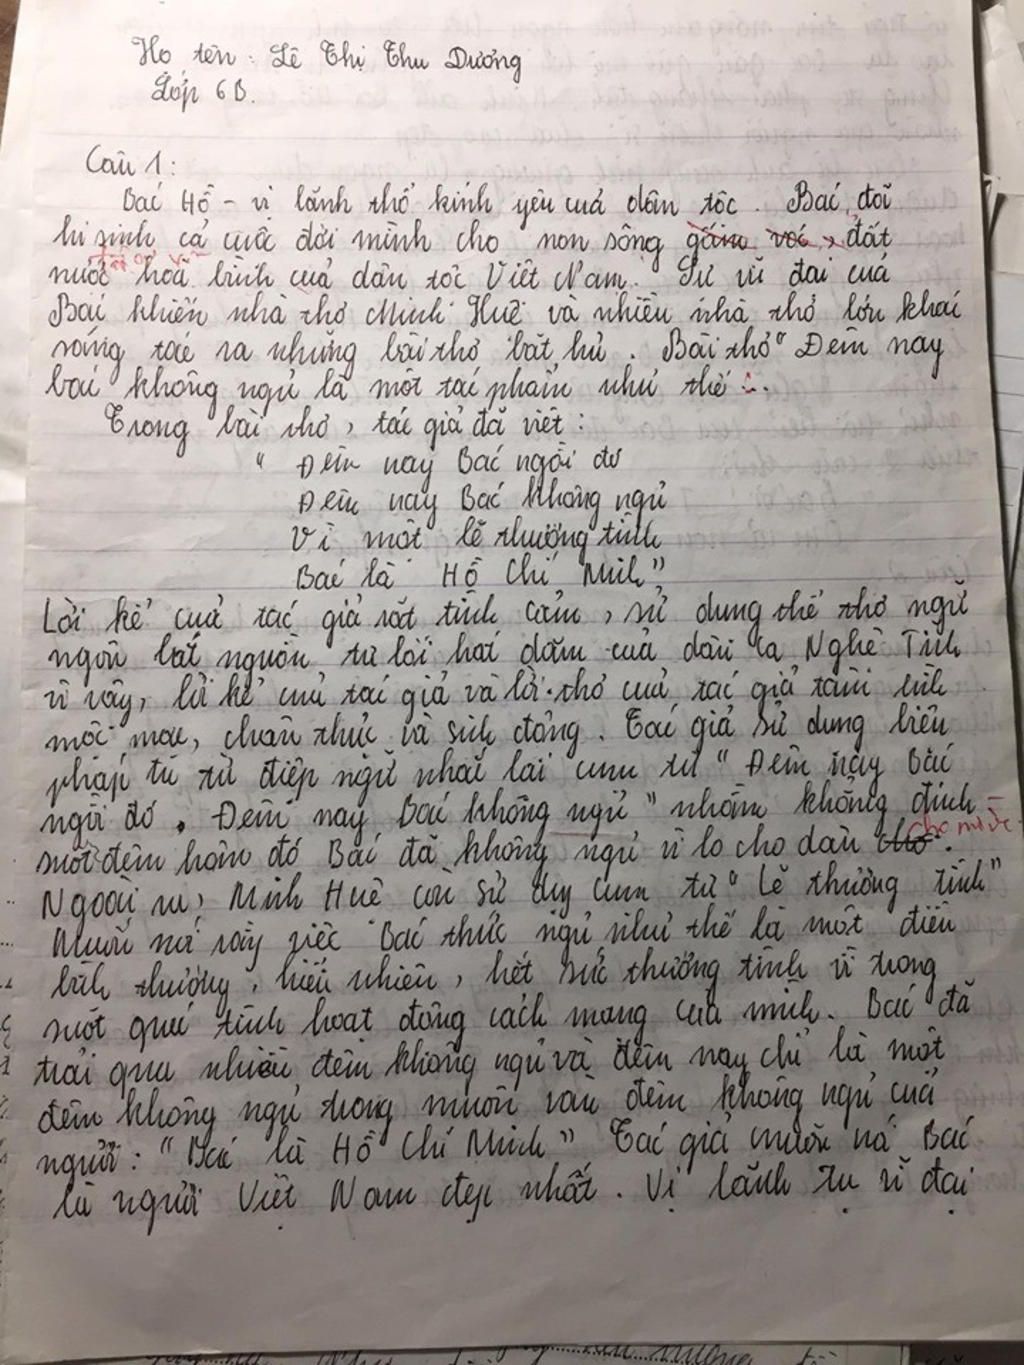 Họ tên: Lê Thị Thu Dương
Lớp 6B.
Câu 1:
Bác Hồ - vị lãnh thổ kính yêu cuả dân tộc. Bác, đã
hi sinh cả cuộc đời mình cho non sông đất
nước hoà bình cuả dân tộc Việt Nam. Sự vĩ đại cuả
Bác khiến nhà thơ Minh Huệ và nhiều nhà thơ lớn khai
sáng tác ra những bài thơ bất hủ. Bài thơ "Đêm nay
bác không ngủ là một tác phẩm như thế :.
Trong bài thơ, tác giả đã viết:
" Đêm nay Bác ngồi đó
Đêm nay Bác không ngủ
Vì một lẽ thường tình
Bác là Hồ Chí Minh"
Lời kể cuả tác giả rất tình cảm, sử dụng thể thơ ngũ
ngôn bắt nguồn từ lối hát dặm cuả dân ca Nghệ Tĩnh
vì vậy, lời kể cuả tác giả và lời thơ cuả tác giả
mộc mạc, chân thực và sinh động. Tác giả sử dụng biện
pháp tu từ điệp ngữ nhắc lại cụm từ " Đêm nay Bác
ngồi đó. Đêm nay Bác không ngủ" nhằm khẳng định
suốt đêm hôm đó Bác đã không ngủ vì lo cho dân cho nước.
Ngoài ra, Minh Huệ còn sử dụng cụm từ " Lẽ thường tình"
Muốn nói rằng việc Bác thức ngủ như thế là một điều
bình thường, hiển nhiên, hết sức thường tình vì trong
suốt quá trình hoạt động cách mạng cuả mình. Bác đã
trải qua nhiều đêm không ngủ và đêm nay chỉ là một
đêm không ngủ trong muôn vàn đêm không ngủ cuả
người: " Bác là Hồ Chí Minh" Tác giả muốn nói Bác
là người Việt Nam đẹp nhất. Vị lãnh tụ vĩ đại